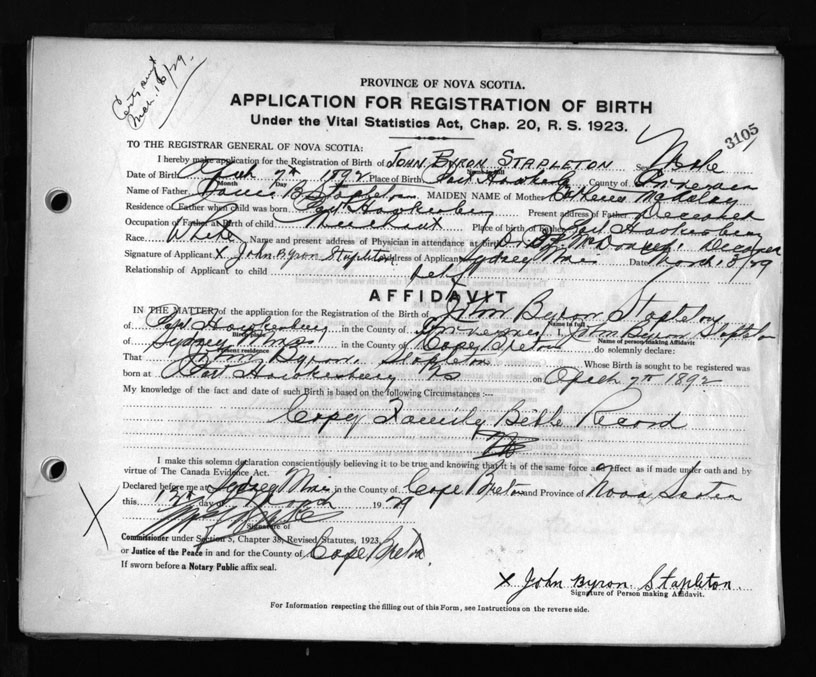 PROVINCE OF NOVA SCOTIA.
APPLICATION FOR REGISTRATION OF BIRTH
Under the Vital Statistics Act, Chap. 20, R. S. 1923.
3105
TO THE REGISTRAR GENERAL OF NOVA SCOTIA:
I hereby make application for the Registration of Birth of JOHN BYRON STAPLETON Sex Male
Date of Birth April 7th 1892 Place of Birth Port Hawkesbury County of Inverness
Month Day
Name of Father B Stapleton MAIDEN NAME of Mother
Residence of Father when child was born Port Hawkesbury Present address of Father Deceased
Occupation of Father at Birth of child Merchant Place of birth of Father Port Hawkesbury
Race White Name and present address of Physician in attendance at birth Dr Deceased
Signature of Applicant X John Byron Stapleton Address of Applicant Sydney Mines Date March 13/29
Relationship of Applicant to child Self
AFFIDAVIT
IN THE MATTER of the application for the Registration of the Birth of John Byron Stapleton
Name in full
of Port Hawkesbury in the County of Inverness I, John Byron Stapleton
Birth place Name of person making Affidavit.
of Sydney Mines in the County of Cape Breton do solemnly declare:
Present residence
That John Byron Stapleton Whose Birth is sought to be registered was
born at Port Hawkesbury NS on April 7th 1892
My knowledge of the fact and date of such Birth is based on the following Circumstances :—
Copy Family Bible Record
I make this solemn declaration conscientiously believing it to be true and knowing that it is of the same force and effect as if made under oath and by
virtue of The Canada Evidence Act.
Declared before me at Sydney Mines in the County of Cape Breton and Province of Nova Scotia
this 13th day of March 1929
Signature of
Commissioner under Section 5, Chapter 38, Revised Statutes, 1923,
or Justice of the Peace in and for the County of Cape Breton
If sworn before a Notary Public affix seal.
X John Byron Stapleton
Signature of Person making Affidavit.
For Information respecting the filling out of this Form, see Instructions on the reverse side.